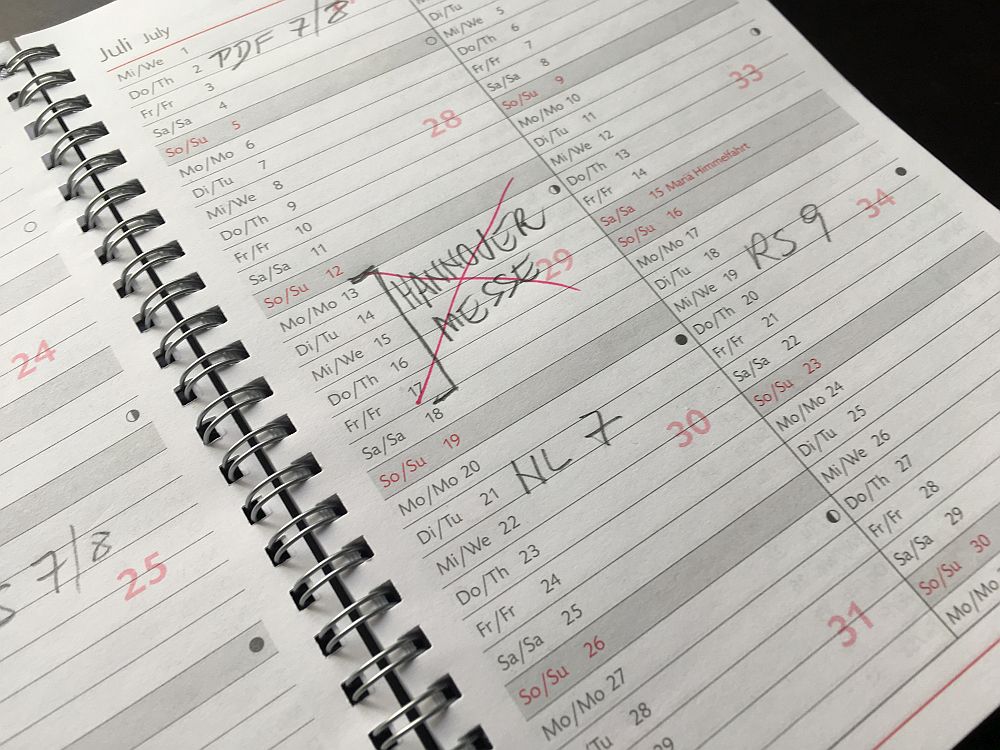 24
S 7/8
25
Juli July
Mi/We 1
Do/Th 2 PDF 7/8
Fr/Fr 3
Sa/Sa 4
So/Su 5
Mo/Mo 6 28
Di/Tu 7
Mi/We 8
Do/Th 9
Fr/Fr 10
Sa/Sa 11
So/Su 12
Mo/Mo 13 HANNOVER 29
Di/Tu 14 MESSE
Mi/We 15
Do/Th 16
Fr/Fr 17
Sa/Sa 18
So/Su 19
Mo/Mo 20 30
Di/Tu 21 NL 7
Mi/We 22
Do/Th 23
Fr/Fr 24
Sa/Sa 25
So/Su 26
Mo/Mo 27 31
/Tu 28
29
Di/Tu
Mi/We 5
Do/Th 6
Fr/Fr 7
Sa/Sa 8
So/Su 9
Mo/Mo 10 33
Di/Tu 11
Mi/We 12
Do/Th 13
Fr/Fr 14
Sa/Sa 15 Mariä Himmelfahrt
So/Su 16
Mo/Mo 17 34
Di/Tu 18
Mi/We 19 RS 9
Do/Th 20
Fr/Fr 21
Sa/Sa 22
So/Su 23
Mo/Mo 24
Di/Tu 25
Mi/We 26
Do/Th 27
Fr/Fr 28
Sa/Sa 29
So/Su 30
Mo/Mo